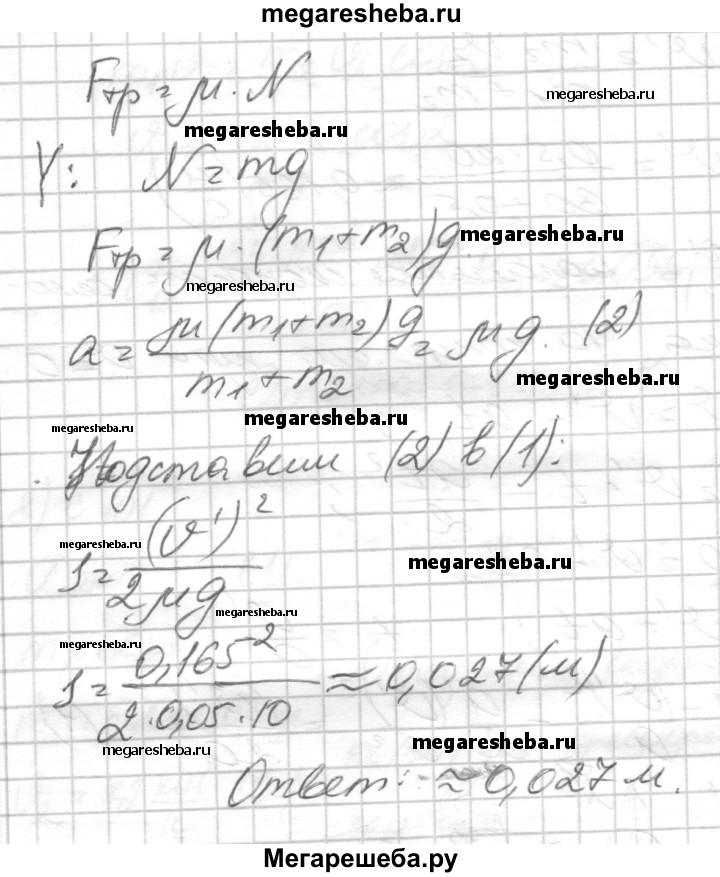 megaresheba.ru
Fтр = μ · N
megaresheba.ru
megaresheba.ru
Y: N = mg
Fтр = μ · (m₁ + m₂)g
megaresheba.ru
megaresheba.ru
a = μ(m₁ + m₂)g / m₁ + m₂ = μg. (2)
megaresheba.ru
megaresheba.ru
megaresheba.ru
Подставим (2) в (1):
megaresheba.ru
S = (v')² / 2μg
megaresheba.ru
megaresheba.ru
megaresheba.ru
S = 0,165² / 2·0,05·10 ≈ 0,027 (м)
megaresheba.ru
megaresheba.ru
Ответ: ≈ 0,027 м.
Мегарешеба.ру